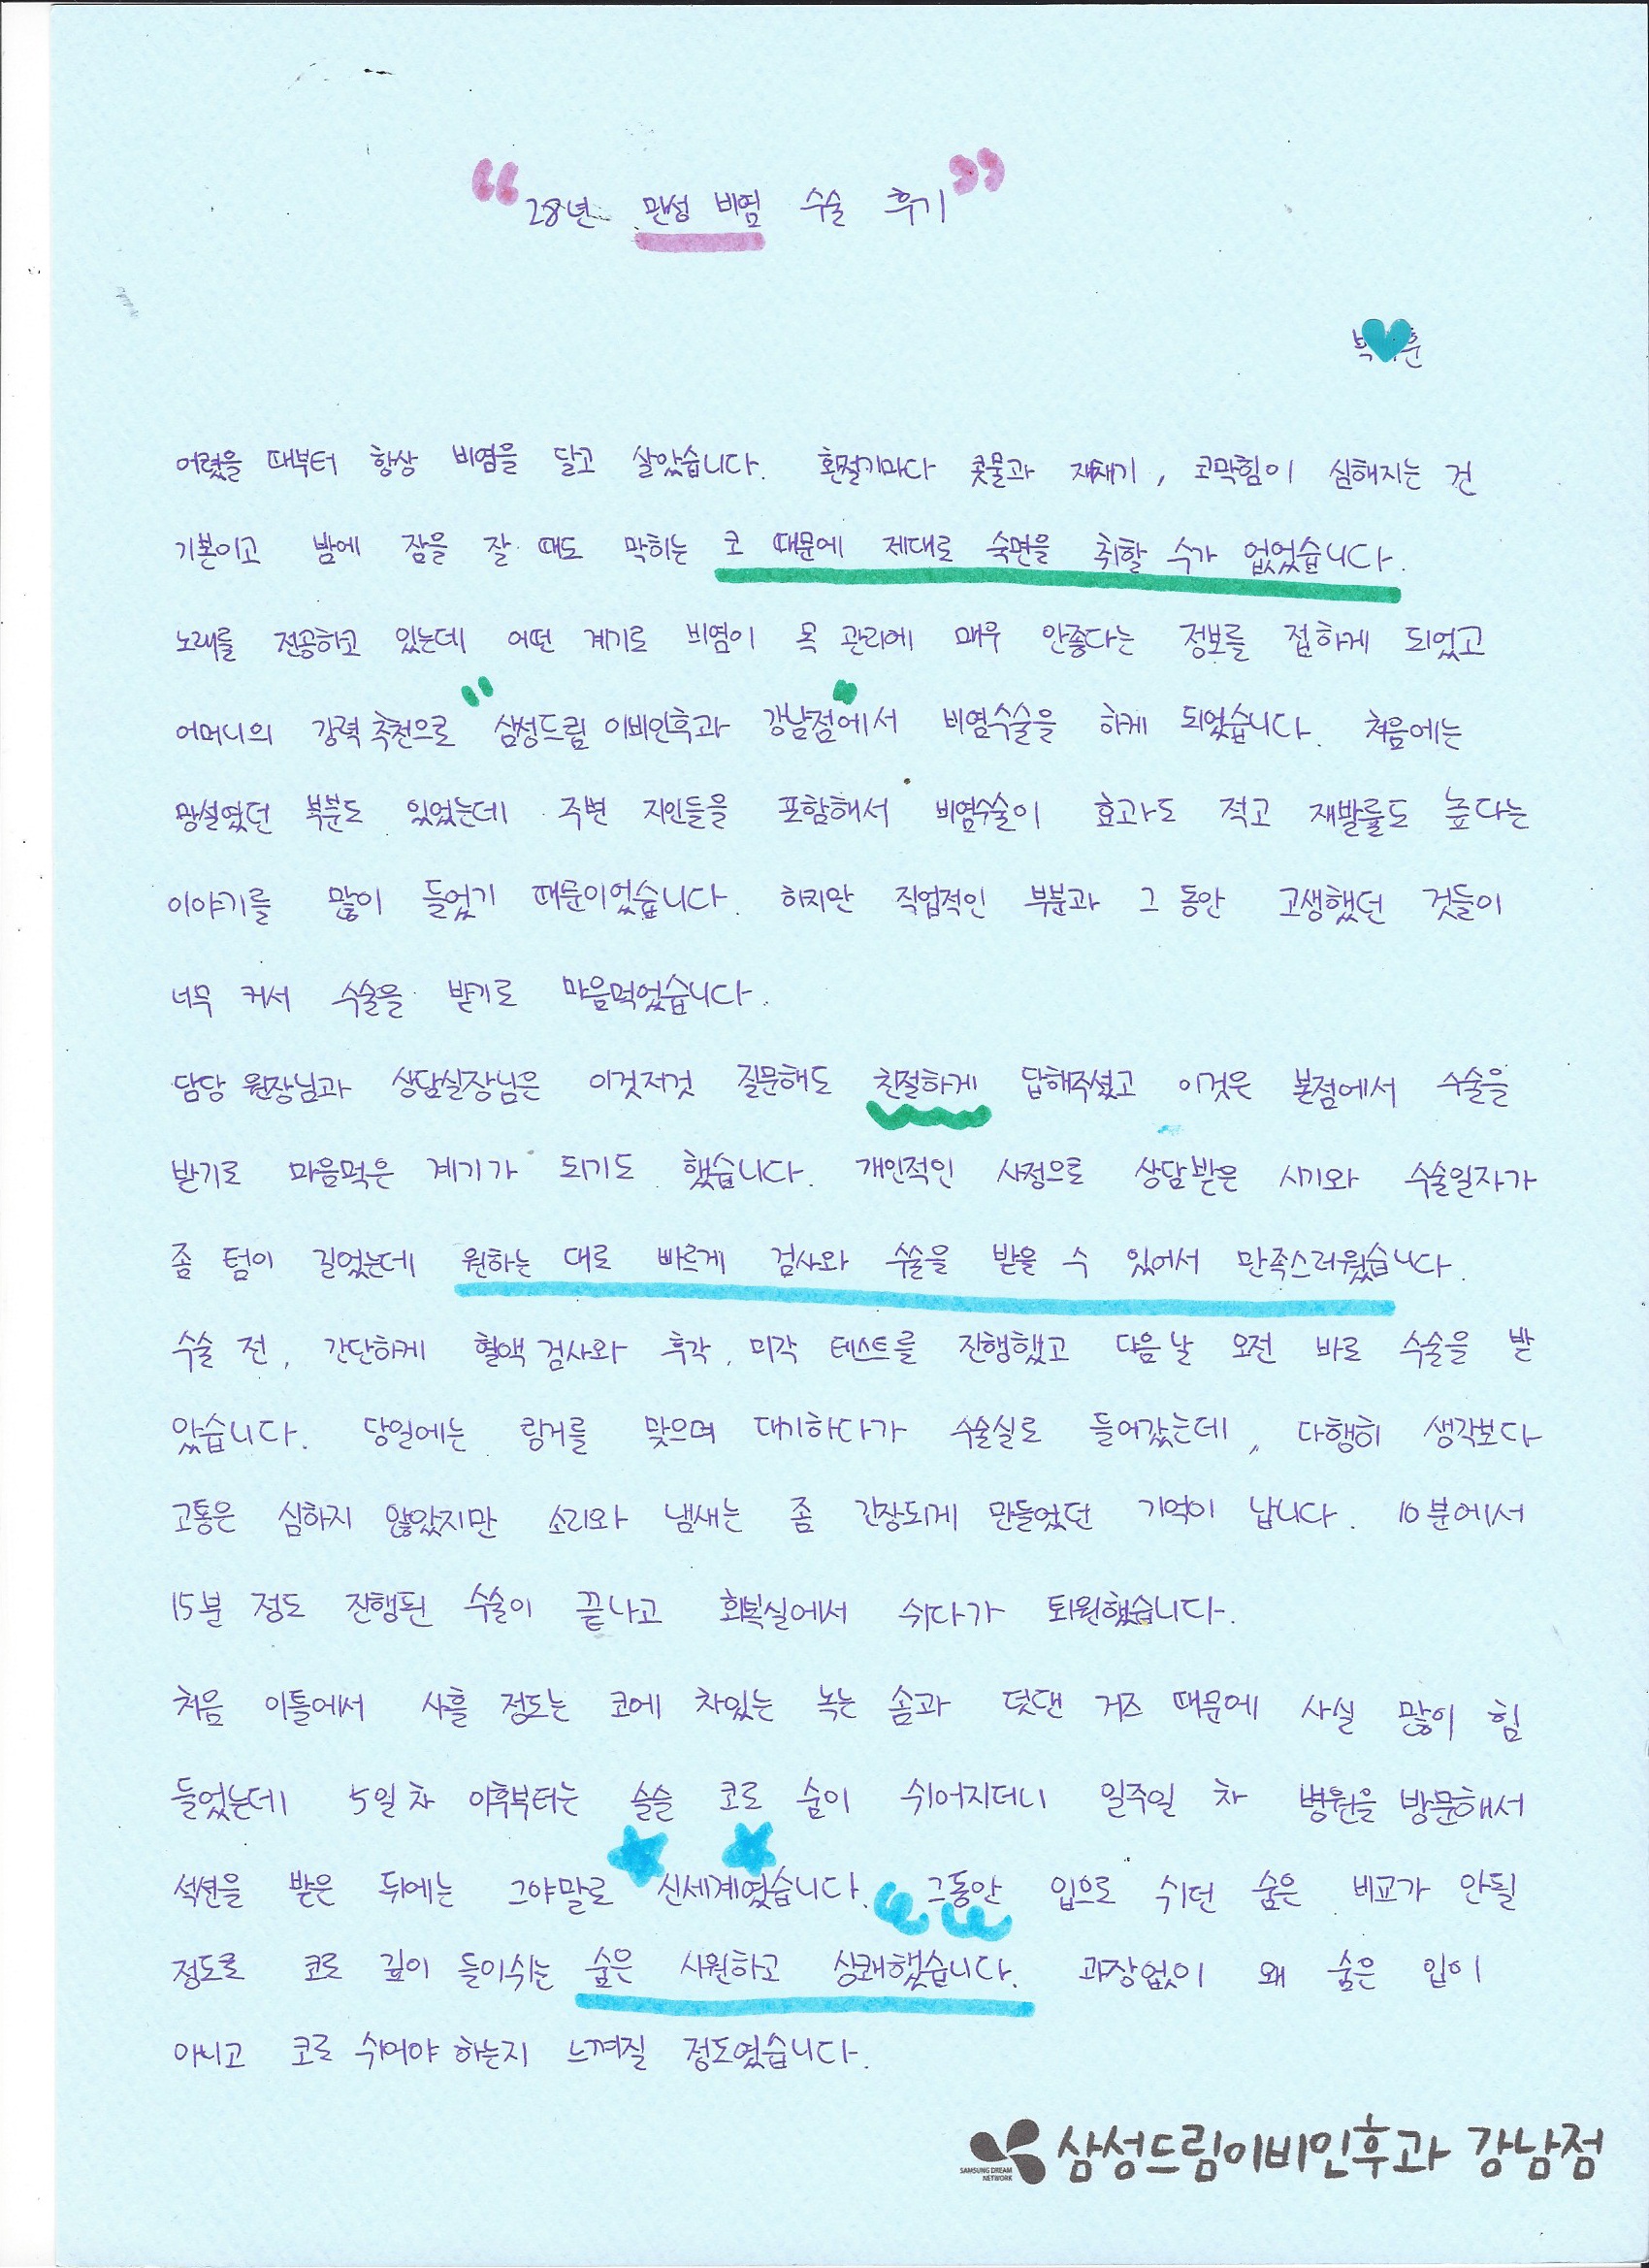 "28년 만성 비염 수술 후기"
어렸을 때부터 항상 비염을 달고 살았습니다. 환절기마다 콧물과 재채기, 코막힘이 심해지는 건
기본이고 밤에 잠을 잘 때도 막히는 코 때문에 제대로 숙면을 취할 수가 없었습니다.
노래를 전공하고 있는데 어떤 계기로 비염이 목 관리에 매우 안좋다는 정보를 접하게 되었고
어머니의 강력 추천으로 "삼성드림 이비인후과 강남점"에서 비염수술을 하게 되었습니다. 처음에는
망설였던 부분도 있었는데 주변 지인들을 포함해서 비염수술이 효과도 적고 재발률도 높다는
이야기를 많이 들었기 때문이었습니다. 하지만 직업적인 부분과 그동안 고생했던 것들이
너무 커서 수술을 받기로 마음먹었습니다.
담당 원장님과 상담실장님은 이것저것 질문해도 친절하게 답해주셨고 이것은 본점에서 수술을
받기로 마음먹은 계기가 되기도 했습니다. 개인적인 사정으로 상담받은 시기와 수술일자가
좀 텀이 길었는데 원하는 대로 빠르게 검사와 수술을 받을 수 있어서 만족스러웠습니다.
수술 전, 간단하게 혈액 검사와 후각, 미각 테스트를 진행했고 다음날 오전 바로 수술을 받
았습니다. 당일에는 링거를 맞으며 대기하다가 수술실로 들어갔는데, 다행히 생각보다
고통은 심하지 않았지만 소리와 냄새는 좀 긴장되게 만들었던 기억이 납니다. 10분에서
15분 정도 진행된 수술이 끝나고 회복실에서 쉬다가 퇴원했습니다.
처음 이틀에서 사흘 정도는 코에 차있는 녹는 솜과 덧댄 거즈 때문에 사실 많이 힘
들었는데 5일차 이후부터는 슬슬 코로 숨이 쉬어지더니 일주일 차 병원을 방문해서
석션을 받은 뒤에는 그야말로 신세계였습니다. 그동안 입으로 쉬던 숨은 비교가 안될
정도로 코로 깊이 들이쉬는 숨은 시원하고 상쾌했습니다. 과장없이 왜 숨은 입이
아니고 코로 쉬어야 하는지 느껴질 정도였습니다.
SAMSUNG DREAM NETWORK 삼성드림이비인후과 강남점